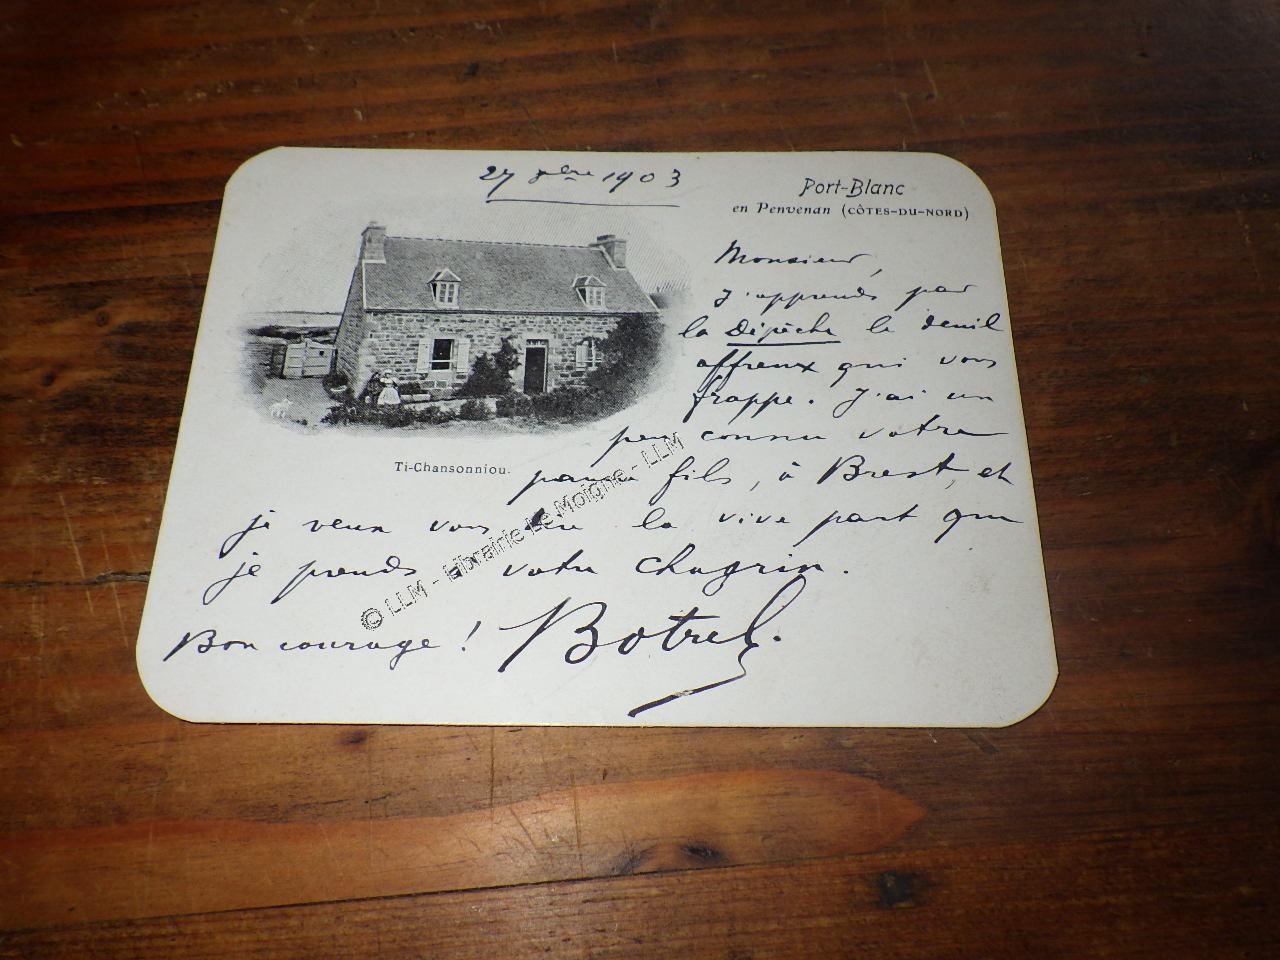 27 1903
Port-Blanc
en Penvenan (CÔTES-DU-NORD)
Monsieur,
J'apprends par
la Dépêche le deuil
affreux qui vous
frappe. J'ai un
peu connu votre
pauvre fils, à Brest, et
Ti-Chansonniou.
je veux vous dire la vive part que
je prends à votre chagrin.
Bon courage ! Botrel.
© LLM - Librairie Le Moigne - LLM